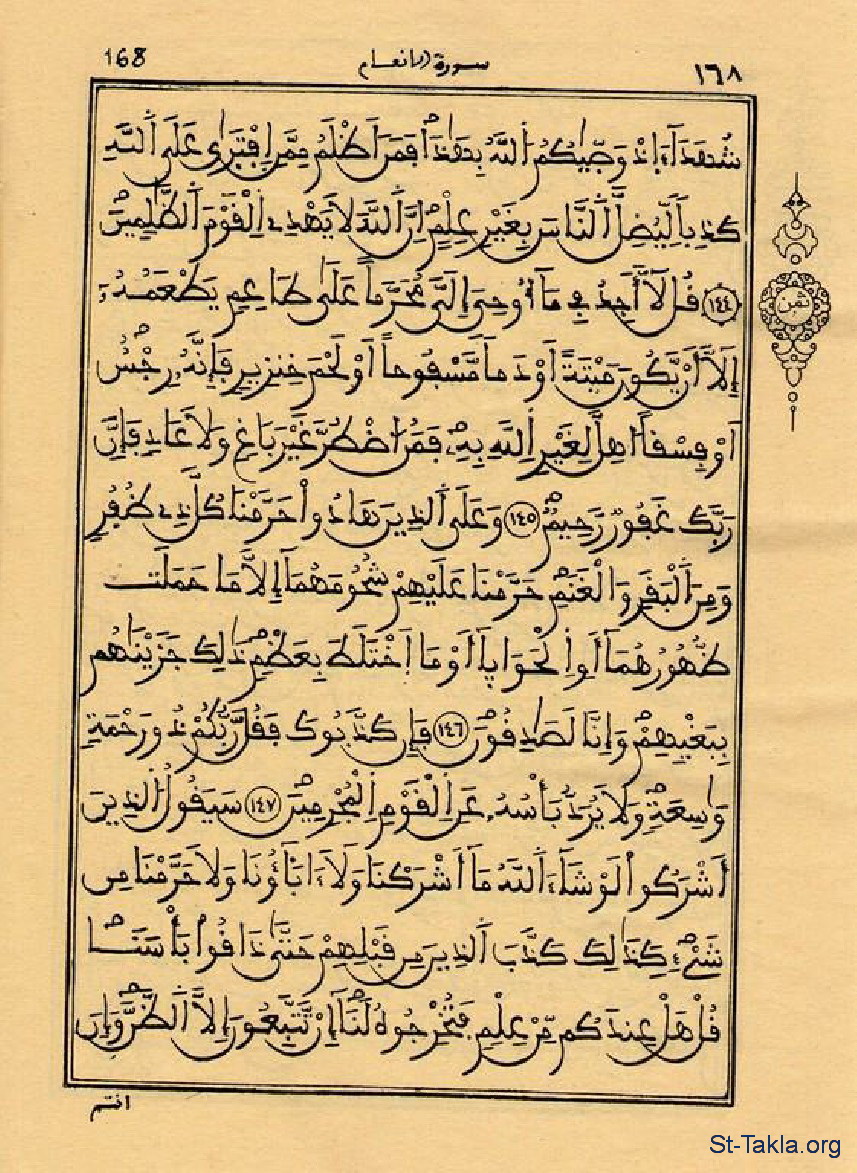 168 سورة الانعام ١٦٨
شُهَدَآءَ اِذْ وَصّٰيكُمُ اُللَّهُ بِهَٰذَا فَمَنَ اَظْلَمُ مِمَّنِ اِفْتَر۪يٰ عَلَي اَللَّهِ
كَذِباٗ لِّيُضِلَّ اَلنَّاسَ بِغَيْرِ عِلْمٍ اِنَّ اَللَّهَ لَا يَهْدِے اِلْقَوْمَ اَلظَّٰلِمِينَ
١٤٤ قُل لَّآ أَجِدُ فِے مَآ أُوحِيَ إِلَيَّ مُحَرَّماً عَلَىٰ طَاعِمٍ يَطْعَمُهُۥٓ
إِلَّآ أَنْ يَّكُونَ مَيْتَةً أَوْ دَماٗ مَّسْفُوحاً أَوْ لَحْمَ خِنزِيرٍ فَإِنَّهُۥ رِجْسٌ
اَوْ فِسْقاً اُهِلَّ لِغَيْرِ اِللَّهِ بِهِۦ فَمَنُ اُضْطُرَّ غَيْرَ بَاغٍ وَلَا عَادٍ فَإِنَّ
رَبَّكَ غَفُورٌ رَّحِيمٌ ١٤٥ وَعَلَي اَلذِينَ هَادُواْ حَرَّمْنَا كُلَّ ذِے ظُفُرٍ
وَمِنَ اَلْبَقَرِ وَالْغَنَمِ حَرَّمْنَا عَلَيْهِمْ شُحُومَهُمَآ إِلَّا مَا حَمَلَت
ظُّهُورُهُمَآ أَوِ اِلْحَوَايَآ أَوْ مَا اَخْتَلَطَ بِعَظْمٍ ذَٰلِكَ جَزَيْنَٰهُم
بِبَغْيِهِمْ وَإِنَّا لَصَٰدِقُونَ ١٤٦ فَإِن كَذَّبُوكَ فَقُل رَّبُّكُمْ ذُو رَحْمَةٍ
وَٰسِعَةٍ وَلَا يُرَدُّ بَأْسُهُۥ عَنِ اِلْقَوْمِ اِلْمُجْرِمِينَ ١٤٧ سَيَقُولُ اُلذِينَ
أَشْرَكُواْ لَوْ شَآءَ اَللَّهُ مَآ أَشْرَكْنَا وَلَآ ءَابَآؤُنَا وَلَا حَرَّمْنَا مِن
شَےْءٍ كَذَٰلِكَ كَذَّبَ اَلذِينَ مِن قَبْلِهِمْ حَتَّىٰ ذَاقُواْ بَأْسَنَا
قُلْ هَلْ عِندَكُم مِّنْ عِلْمٍ فَتُخْرِجُوهُ لَنَآ إِن تَتَّبِعُونَ إِلَّا اَلظَّنَّ وَإِنَ
انتم
ثمن
St-Takla.org